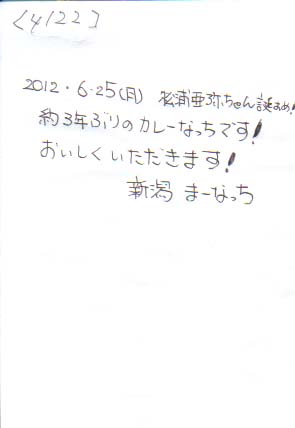 [4122]
2012・6・25(月) 松浦亜弥ちゃん誕おめ!
約3年ぶりのカレーなっちです!
おいしくいただきます!
新潟 まーなっち